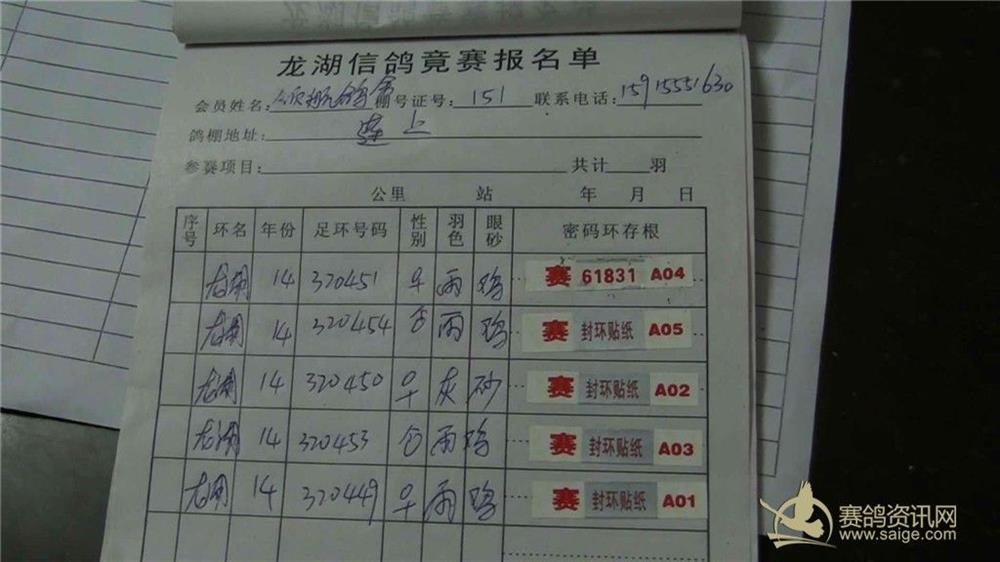 龙湖信鸽竟赛报名单
会员姓名: 颂航鸽舍 棚号证号: 151 联系电话: 15915551630
鸽棚地址: 莲上
参赛项目: 共计 羽
公里 站 年 月 日
序号 环名 年份 足环号码 性别 羽色 眼砂 密码环存根
龙湖 14 320451 早 雨 鸡 赛 61831 A04
龙湖 14 320454 合 雨 鸡 赛 封环贴纸 A05
龙湖 14 320450 早 灰 砂 赛 封环贴纸 A02
龙湖 14 320453 合 雨 鸡 赛 封环贴纸 A03
龙湖 14 320449 早 雨 鸡 赛 封环贴纸 A01
赛鸽资讯网
www.saige.com